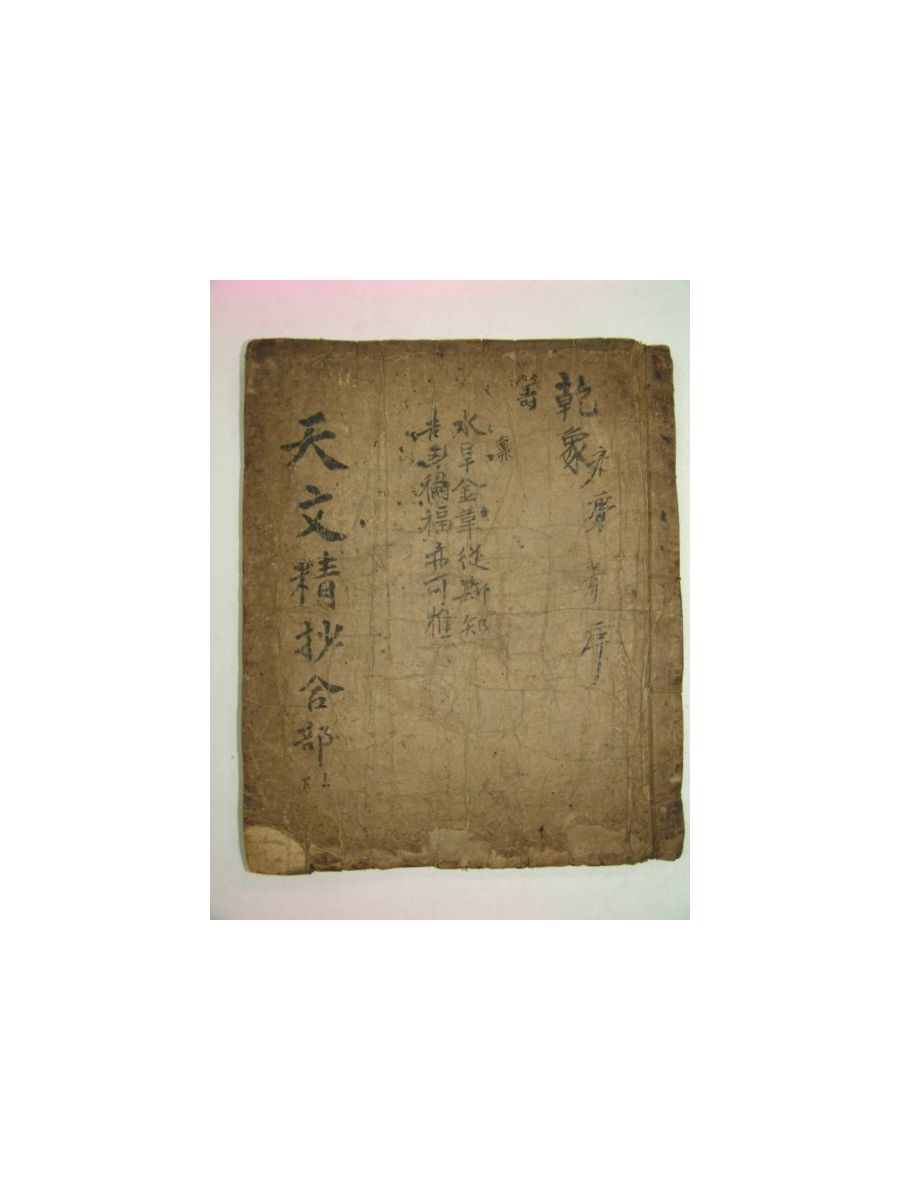 乾象
籌
水旱金革從斯知
吉凶禍福亦可推
天文精抄合部
上
下